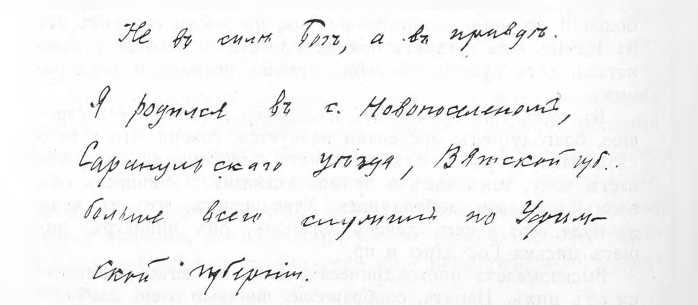 Не въ силѣ Богъ, а въ правдѣ.
Я родился въ с. Новопоселеномъ,
Сарапульскаго уѣзда, Вятской губ.
больше всего служилъ по Уфим-
ской губерніи.